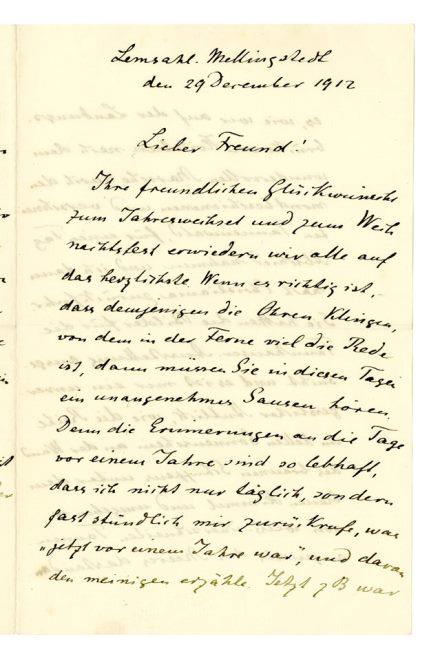 Lemsahl. Mellingstedt
den 29 December 1912
Lieber Freund!
Ihre freundlichen Glückwünsche
zum Jahreswechsel und zum Weih
nachtsfest erwiedern wir alle auf
das herzlichste Wenn es richtig ist,
dass demjenigen die Ohren klingen,
von dem in der Ferne viel die Rede
ist, dann müssen Sie in diesen Tagen
ein unangenehmes Sausen hören.
Denn die Erinnerungen an die Tage
vor einem Jahre sind so lebhaft,
dass ich nicht nur täglich, sondern
fast stündlich mir zurückrufe, was
"jetzt vor einem Jahre war", und davon
den meinigen erzähle. Jetzt z B war